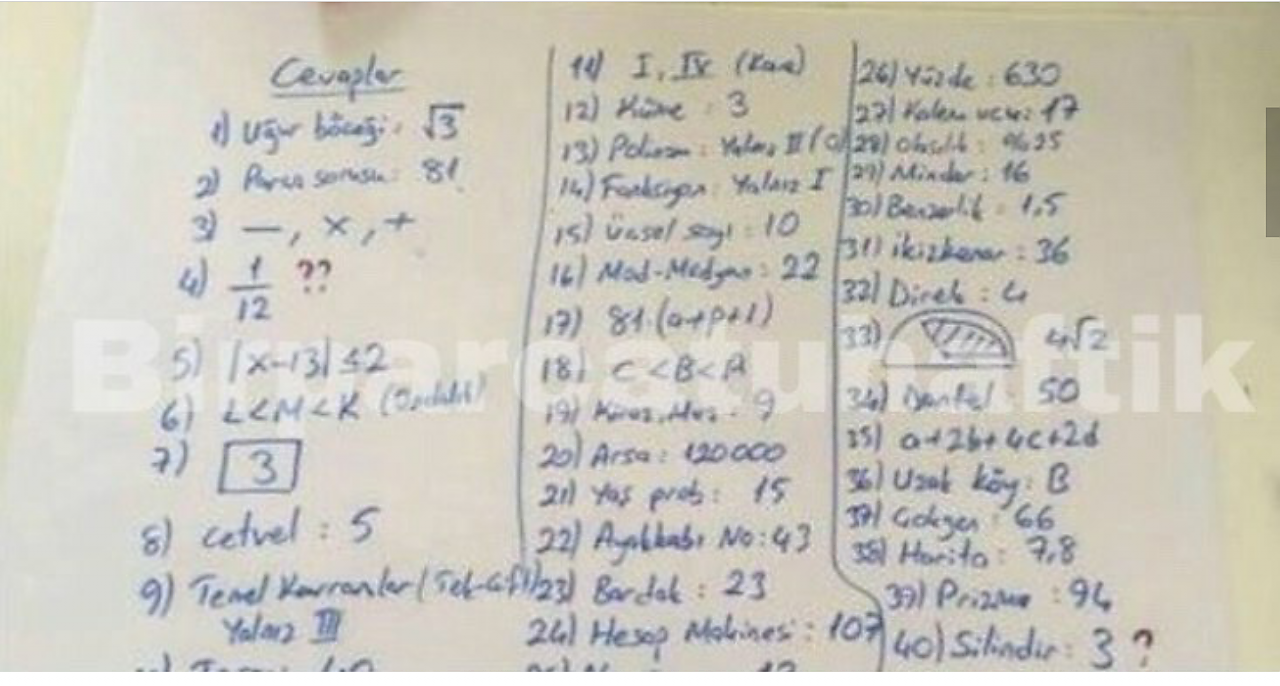 Cevaplar
1) Uğur böceği : √3
2) Para sorusu : 81
3) —, ×, +
4) 1/12 ??
5) |x-13| ≤2
6) L<M<K
7) 3
8) cetvel : 5
9) Temel Kavramlar (Tek-Çift)
Yalnız III
11) I, IV (Kare)
12) Küme : 3
13) Polinom : Yalnız II
14) Fonksiyon : Yalnız I
15) Üssel sayı : 10
16) Mod-Medyan : 22
17) 81.(a+p+1)
18) C<B<A
19) Kiraz, Muz : 9
20) Arsa : 120000
21) Yaş prob : 15
22) Ayakkabı No : 43
23) Bardak : 23
24) Hesap Makinesi : 107
26) Yüzde : 630
27) Kalem ucu : 17
28) Olasılık : %25
29) Minder : 16
30) Benzerlik : 1,5
31) ikizkenar : 36
32) Direk : 4
33) 4√2
34) 50
35) a+2b+4c+2d
36) Uzak köy : B
37) Çokgen : 66
38) Harita : 7,8
39) Prizma : 94
40) Silindir : 3 ?